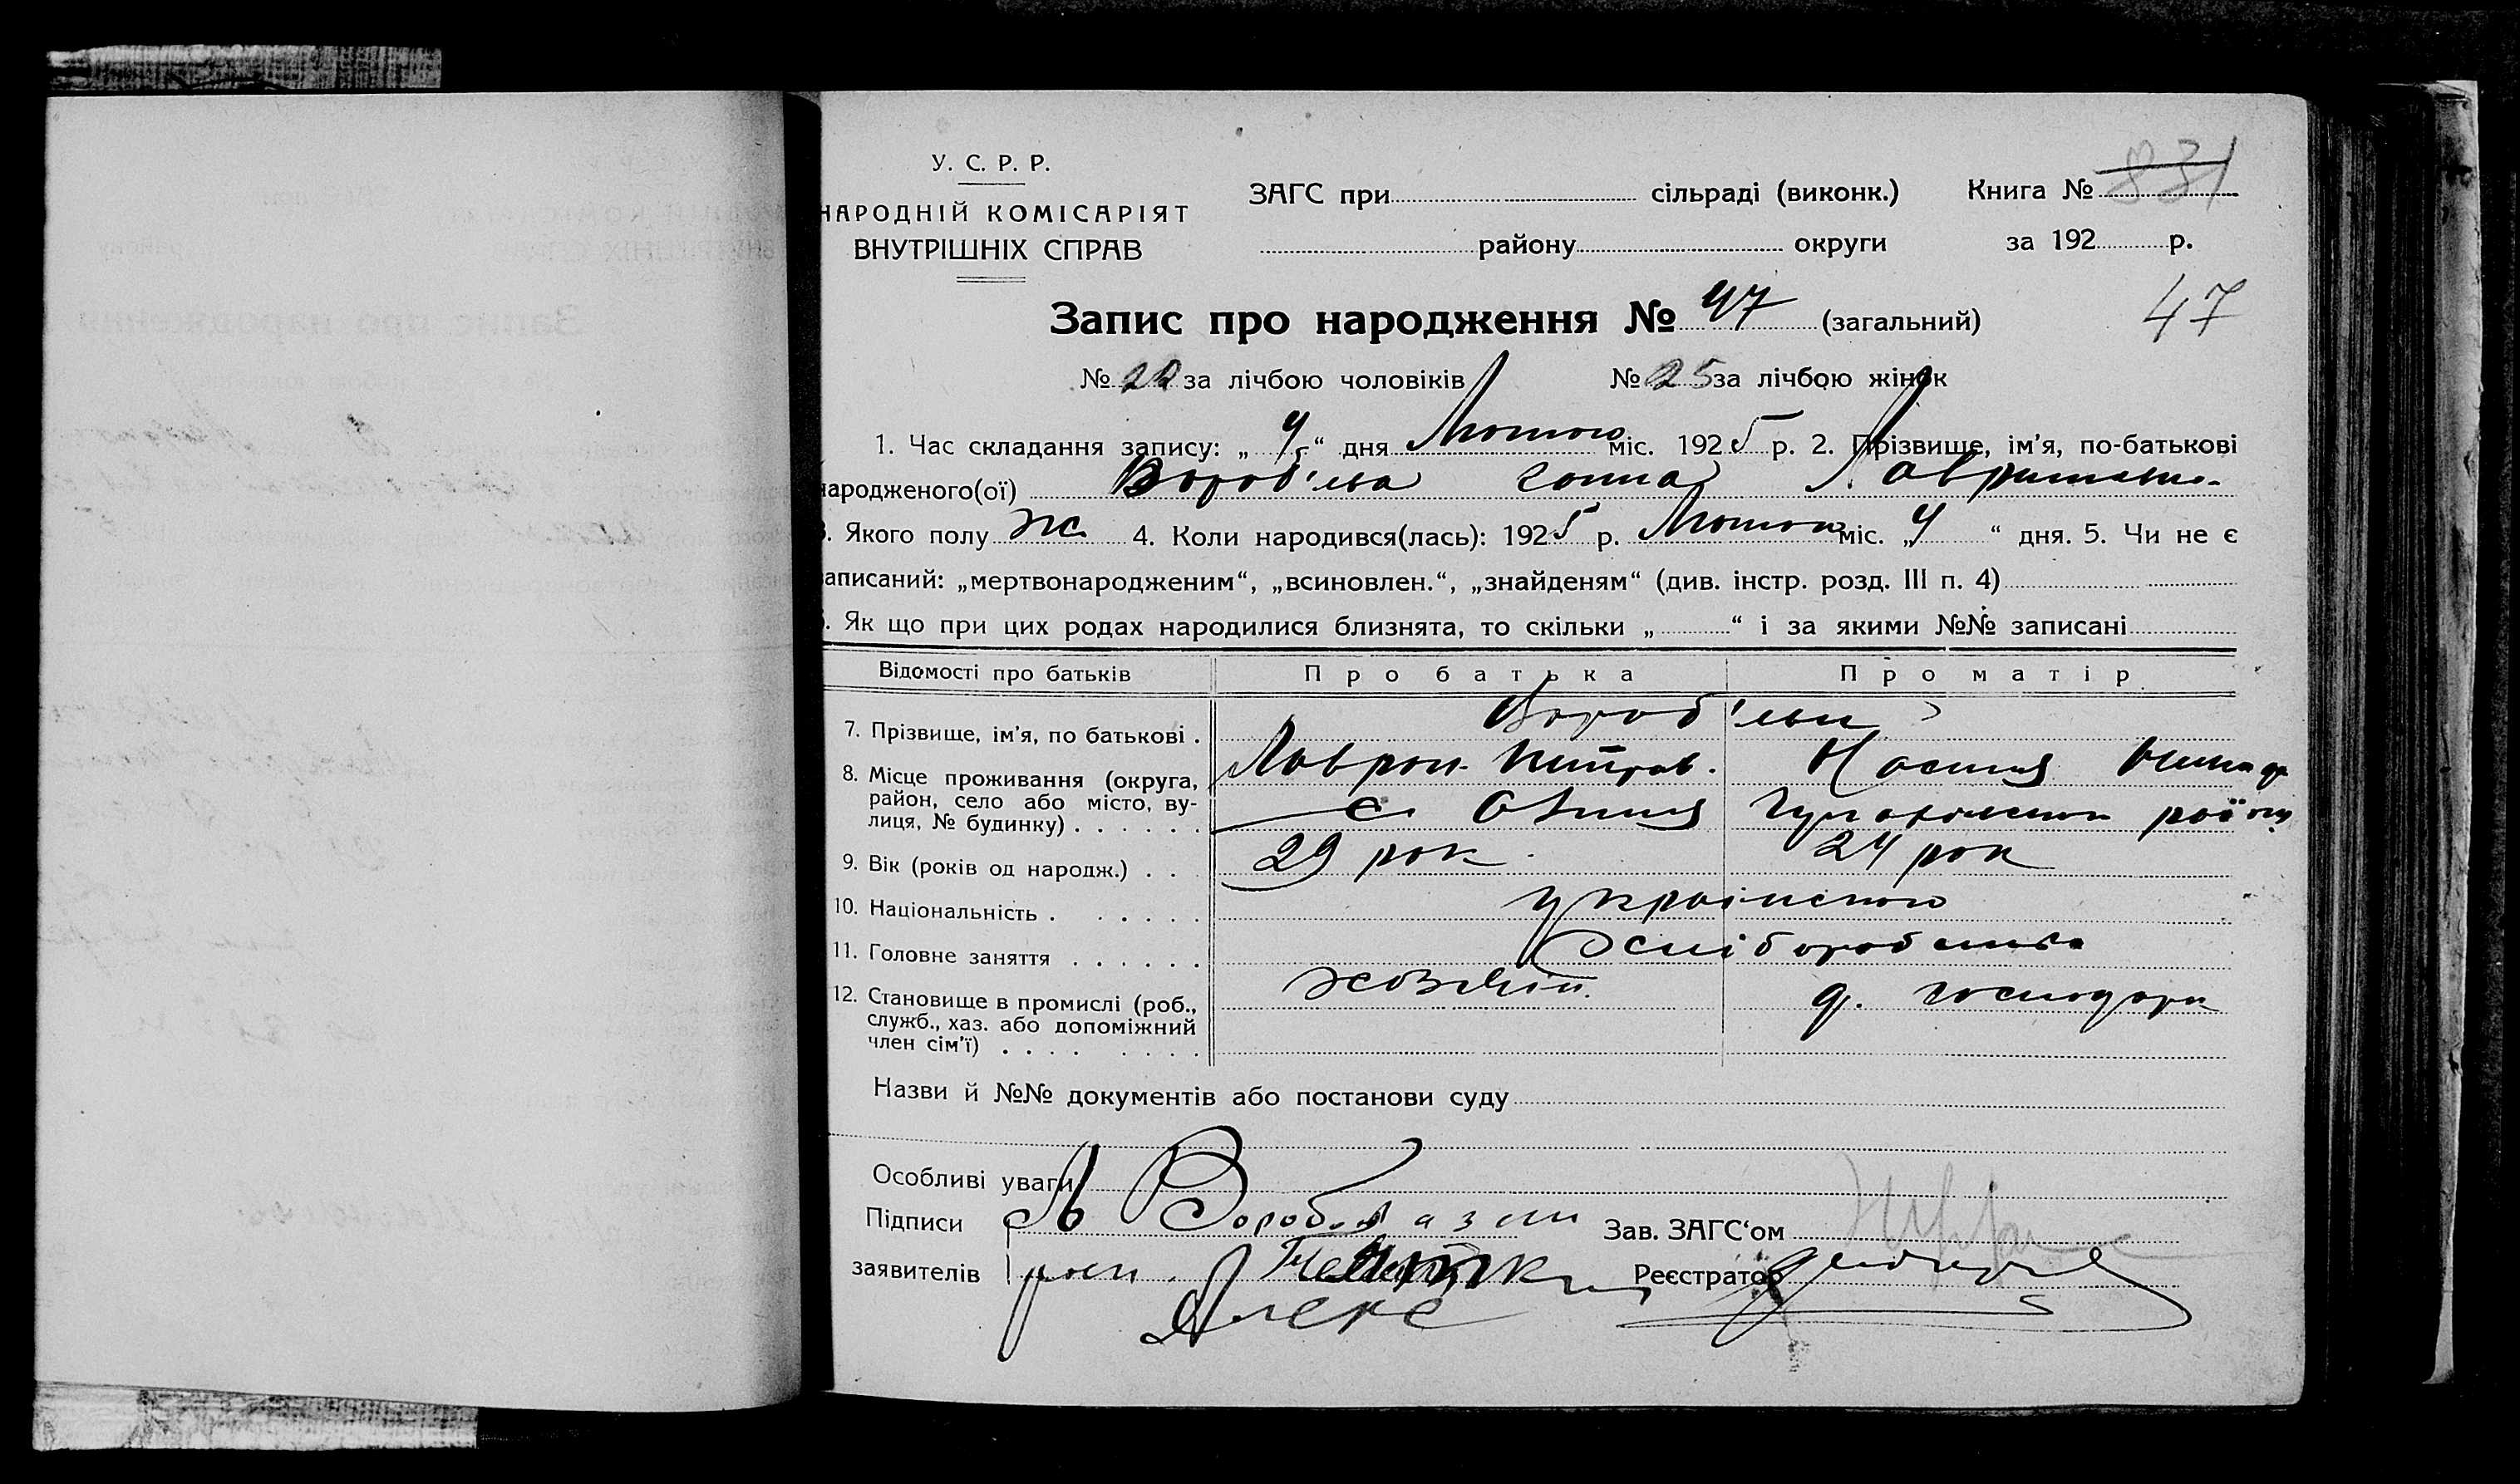 У. С. Р. Р.
НАРОДНІЙ КОМІСАРІЯТ
ВНУТРІШНІХ СПРАВ
ЗАГС при сільраді (виконк.) Книга № 831
району округи за 192 р.
Запис про народження № 47 (загальний) 47
№ 22 за лічбою чоловіків № 25 за лічбою жінок
1. Час складання запису: „ 4 “ дня Лютого міс. 1925 р. 2. Прізвище, ім'я, по-батькові
народженого(ої) Вороб'ева Ганна
3. Якого полу ж 4. Коли народився(лась): 1925 р. Лютого міс. „ 4 “ дня. 5. Чи не є
записаний: „мертвонародженим“, „всиновлен.“, „знайденям“ (див. інстр. розд. III п. 4)
6. Як що при цих родах народилися близнята, то скільки „ “ і за якими №№ записані
Відомості про батьків Про батька Про матір
7. Прізвище, ім'я, по батькові . Вороб'еви
Лаврен. Петров. Настя
8. Місце проживання (округа, район, село або місто, вулиця, № будинку) . . . . . . с.
9. Вік (років од народж.) . . 29 рок 24 рок
10. Національність . . . . . . українського
11. Головне заняття . . . . . . хліборобства
12. Становище в промислі (роб., служб., хаз. або допоміжний член сім'ї) . . . . . . . . хозяїн д. господарк
Назви й №№ документів або постанови суду
Особливі уваги
Підписи Зав. ЗАГС'ом
заявителів Реєстратор